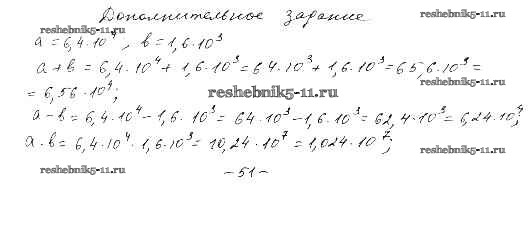 Дополнительное задание
reshebnik5-11.ru
reshebnik5-11.ru
a = 6,4·10⁴, b = 1,6·10³
a + b = 6,4·10⁴ + 1,6·10³ = 64·10³ + 1,6·10³ = 65,6·10³ =
reshebnik5-11.ru
= 6,56·10⁴;
reshebnik5-11.ru
a - b = 6,4·10⁴ - 1,6·10³ = 64·10³ - 1,6·10³ = 62,4·10³ = 6,24·10⁴;
a·b = 6,4·10⁴·1,6·10³ = 10,24·10⁷ = 1,024·10⁷;
reshebnik5-11.ru
reshebnik5-11.ru
-51-